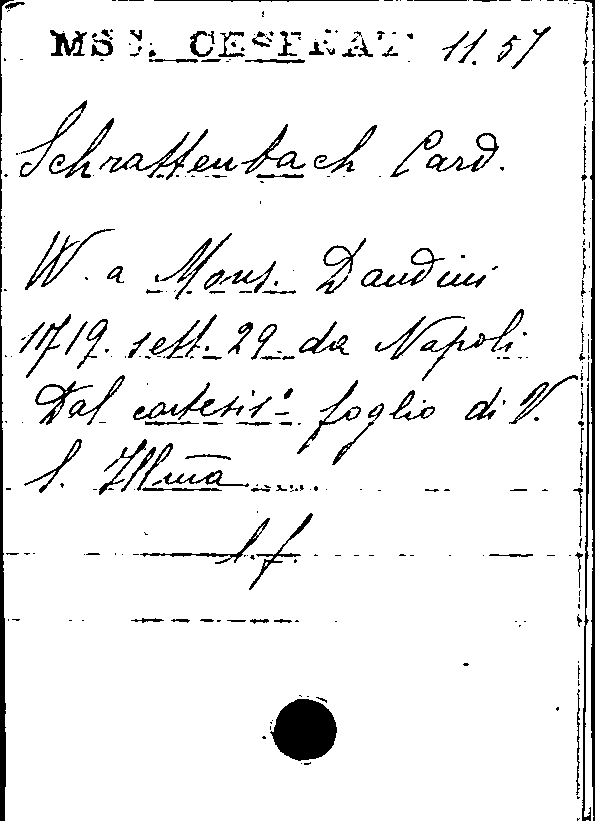 MSS. CESENAT 11.57
Schrattenbach Card.
W. a Mons. Dandini
1719. sett. 29. da Napoli
Dal cortesis.º foglio di V.
S. Illma ......
l. f.